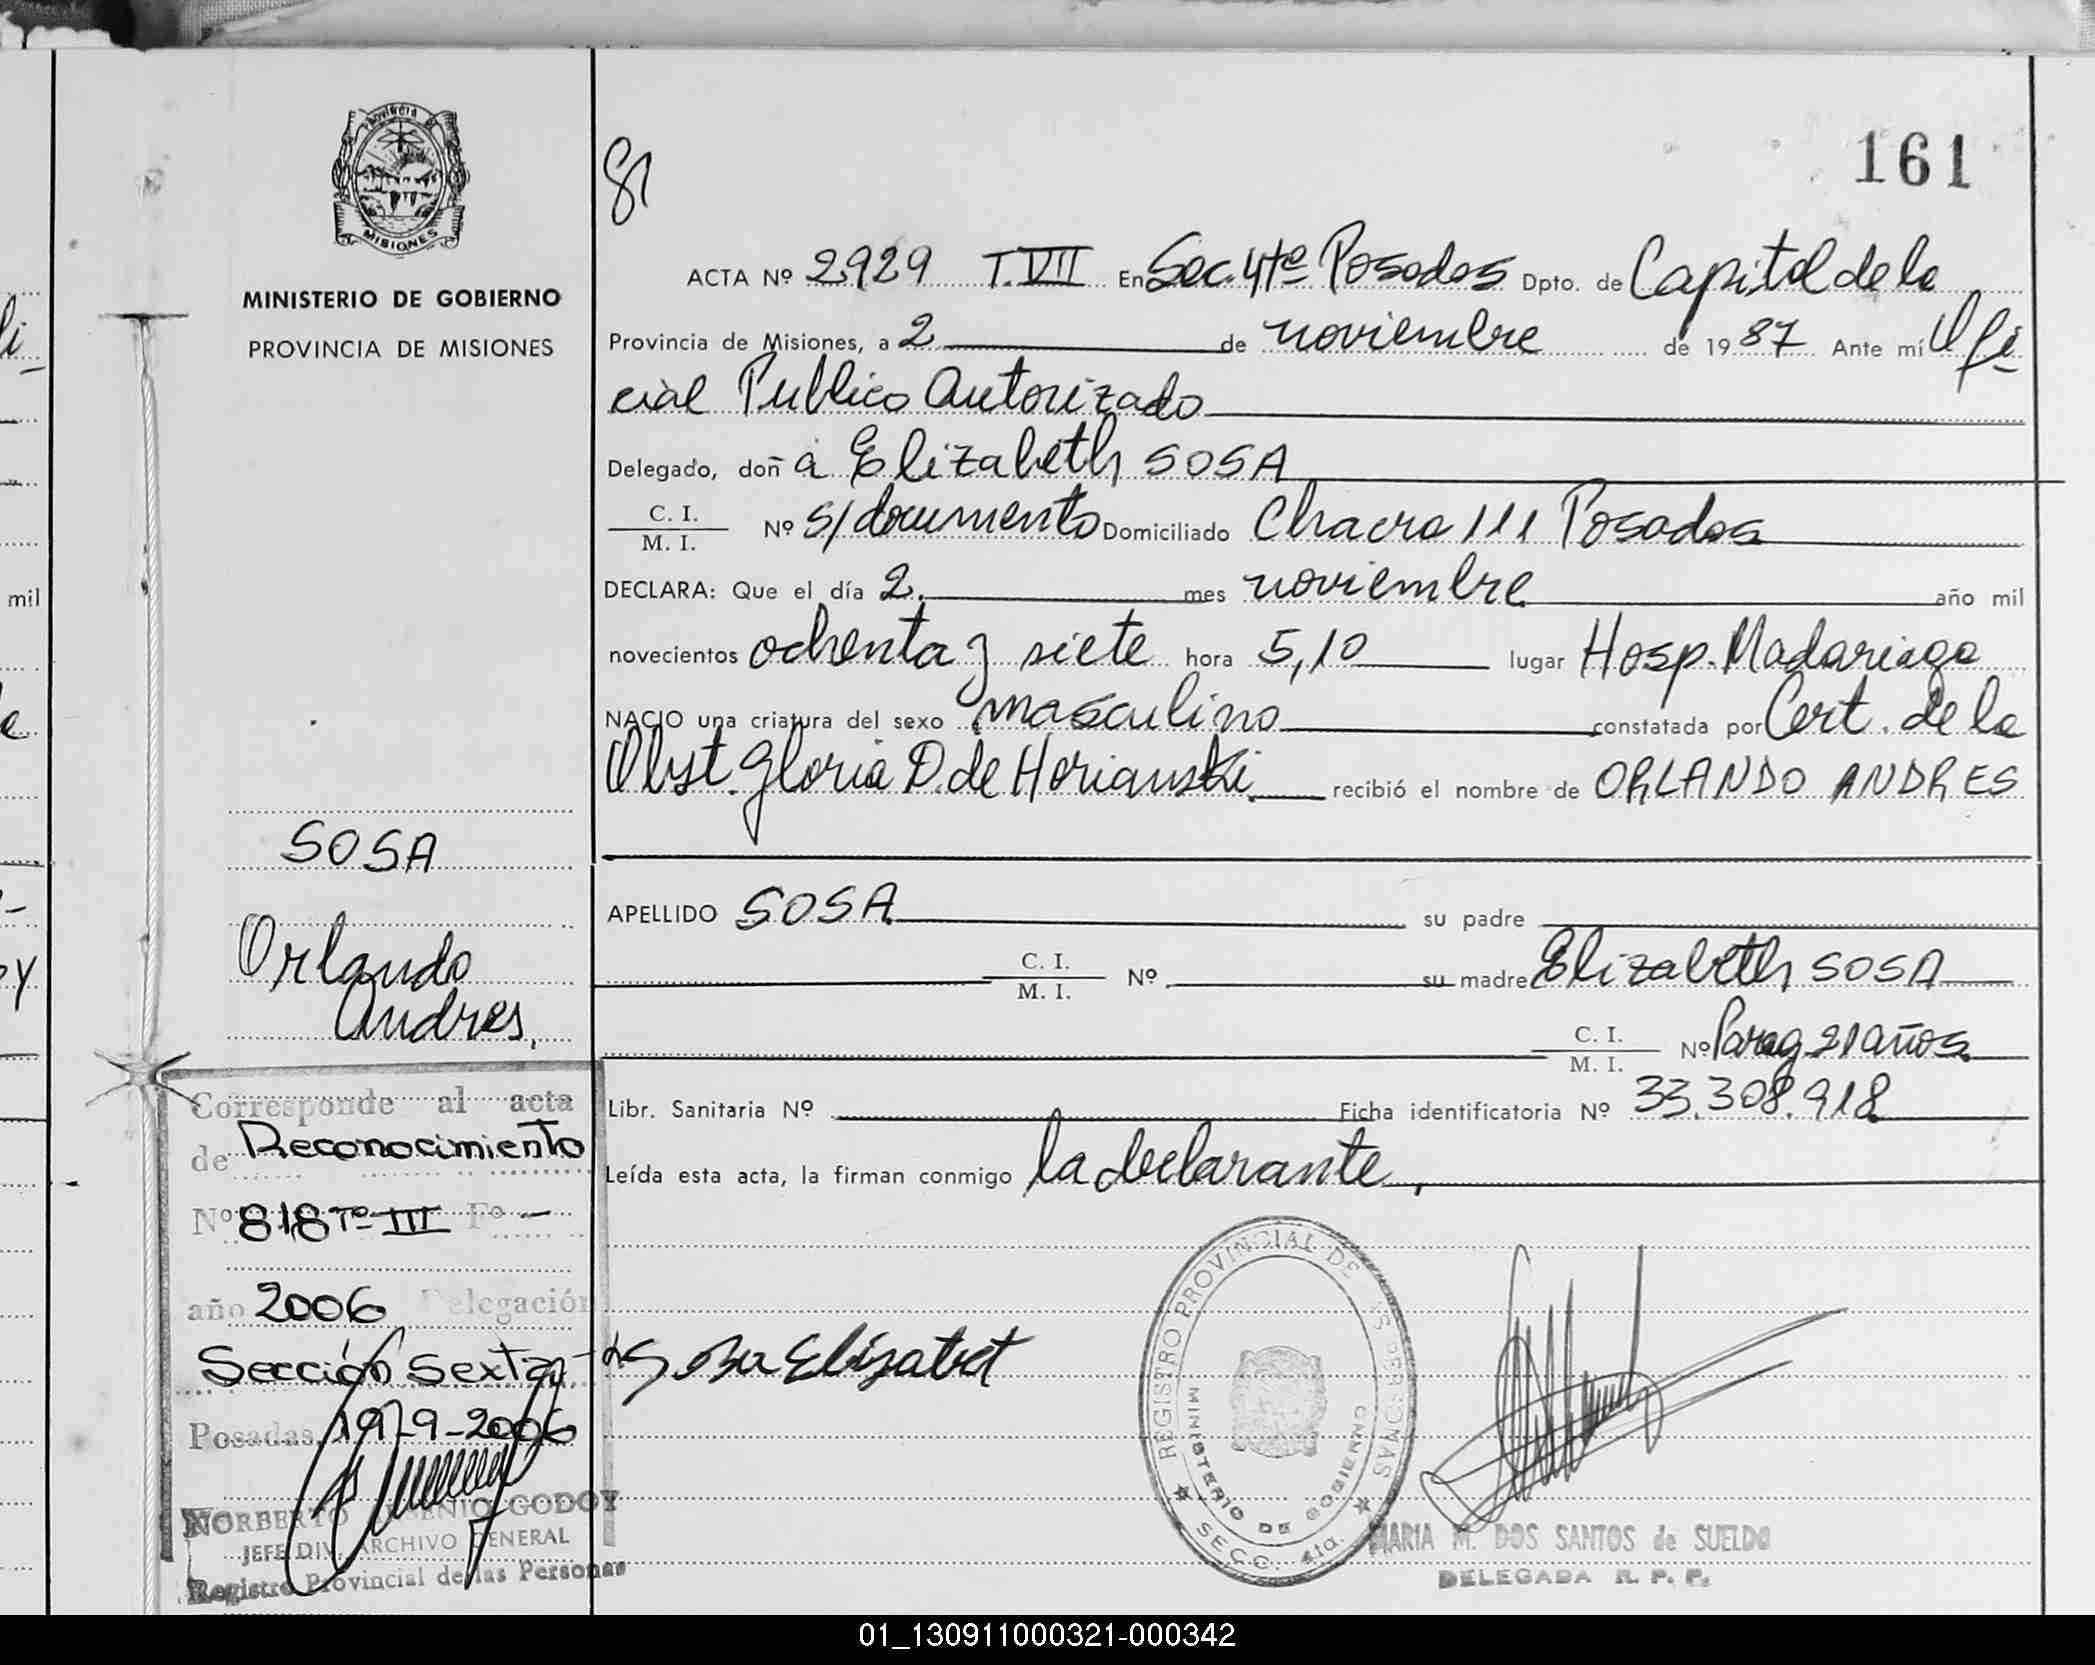 Provincia de
MISIONES
MINISTERIO DE GOBIERNO
PROVINCIA DE MISIONES
81
161
ACTA Nº 2929 T. VII En Sec. 4ta Posadas Dpto. de Capital de la
Provincia de Misiones, a 2 de noviembre de 1987 Ante mí Ofi-
cial Publico Autorizado
Delegado, doña Elizabeth SOSA
C. I.
M. I. Nº s/documento Domiciliado Chacra 111 Posadas
DECLARA: Que el día 2 mes noviembre año mil
novecientos ochenta y siete hora 5,10 lugar Hosp. Madariaga
NACIO una criatura del sexo masculino constatada por Cert. de la
Obst. Gloria D. de Horianski recibió el nombre de ORLANDO ANDRES
APELLIDO SOSA su padre
C. I.
M. I. Nº su madre Elizabeth SOSA
C. I.
M. I. Nº Parag 21 años
Libr. Sanitaria Nº Ficha identificatoria Nº 33.308.918
Leída esta acta, la firman conmigo la declarante,
Sosa Elizabet
REGISTRO PROVINCIAL DE LAS PERSONAS
MINISTERIO DE GOBIERNO
SECC. 4ta.
MARIA M. DOS SANTOS de SUELDO
DELEGADA R. P. P.
SOSA
Orlando
Andres,
Corresponde al acta
de Reconocimiento
Nº 818 Tº III Fº -
año 2006 Delegación
Sección Sexta
Posadas, 19-9-2006
NORBERTO ARSENIO GODOY
JEFE DIV. ARCHIVO GENERAL
Registro Provincial de las Personas
mil
01_130911000321-000342